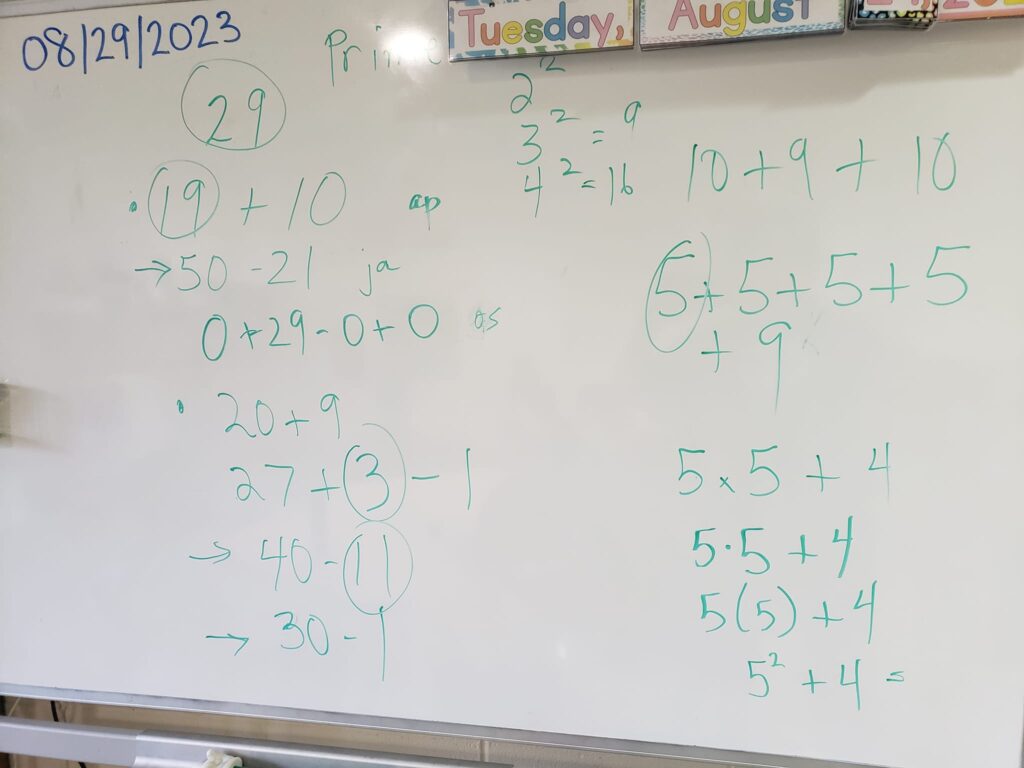 Tuesday, August
08/29/2023
Prime
29
2²
3² = 9
4² = 16
19 + 10 ap
→ 50 - 21 ja
0 + 29 - 0 + 0 as
20 + 9
27 + 3 - 1
→ 40 - 11
→ 30 - 1
10 + 9 + 10
5 + 5 + 5 + 5
+ 9
5 x 5 + 4
5 · 5 + 4
5(5) + 4
5² + 4 =